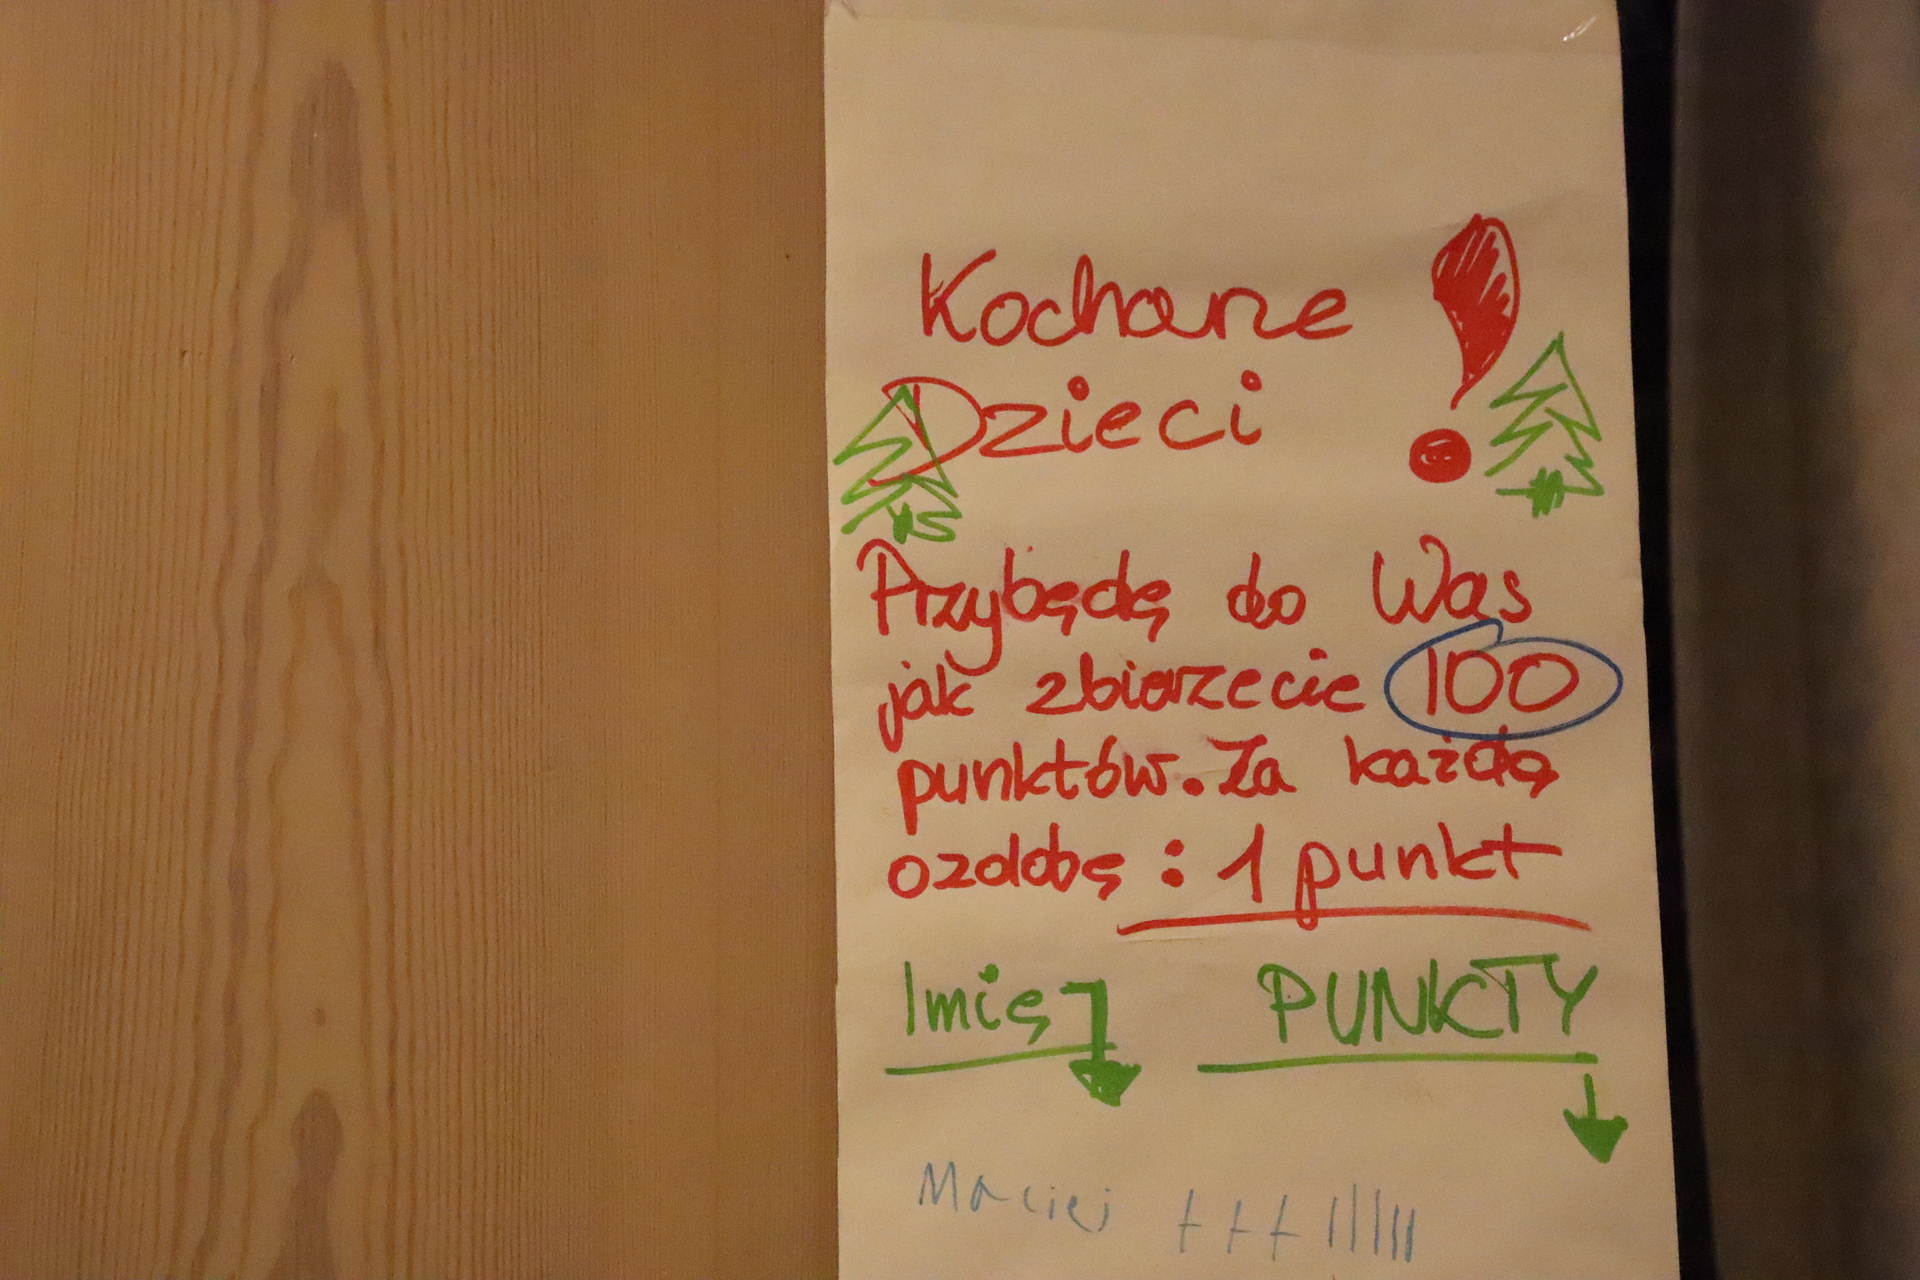 Kochane !
Dzieci
Przybędę do Was
jak zbierzecie 100
punktów. Za każdą
ozdobę : 1 punkt
Imię PUNKTY
Maciej